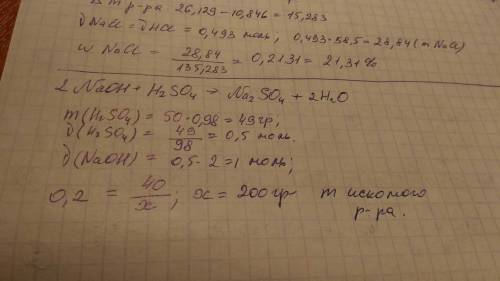 В т р-ра 26,129 - 10,846 = 15,283
∂ NaCl = ∂ HCl = 0,493 моль, 0,493·58,5 = 28,84 (m NaCl)
w NaCl = 28,84/135,283 = 0,2131 = 21,31%
2 NaOH + H₂SO₄ → Na₂SO₄ + 2H₂O
m(H₂SO₄) = 50·0,98 = 49 гр,
∂(H₂SO₄) = 49/98 = 0,5 моль.
∂(NaOH) = 0,5·2 = 1 моль;
0,2 = 40/x; x = 200 гр m искомого
р-ра.